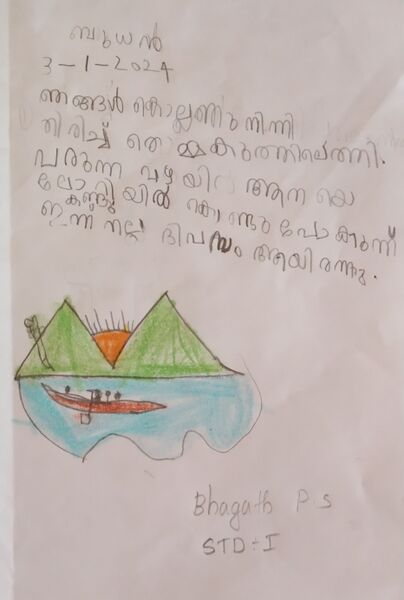 ബുധൻ
3-1-2024
ഞങ്ങൾ കൊല്ലണ്ടു നിന്നി
തിരിച്ച് തൊമ്മകുത്തിലെത്തി.
പരുന്ന വഴിയിൽ ആന യെ
ലോറിയിൽ കൊണ്ടുപോകുന്ന്
കണ്ടു
ഇന്ന് നല്ല ദിപസം ആയിരന്നു.
Bhagath P.S
STD÷I